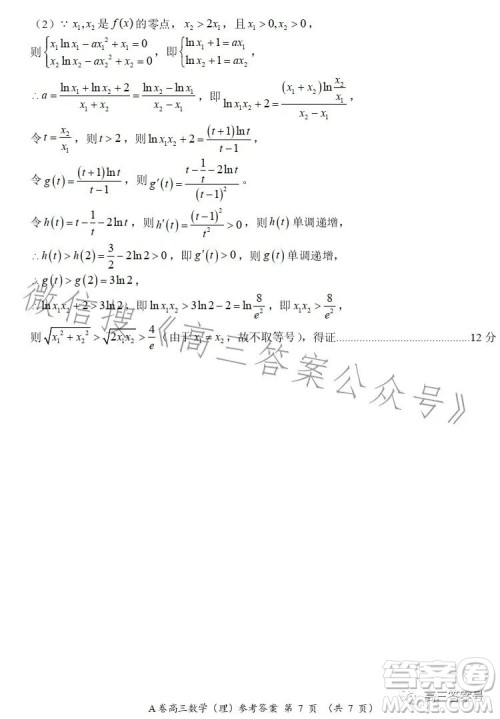 （2）∵ x₁,x₂ 是 f(x) 的零点，x₂>2x₁，且 x₁>0,x₂>0，
则 {x₁lnx₁-ax₁²+x₁=0 x₂lnx₂-ax₂²+x₂=0，即 {lnx₁+1=ax₁ lnx₂+1=ax₂，
∴a=(lnx₁+lnx₂+2)/(x₁+x₂)=(lnx₂-lnx₁)/(x₂-x₁)，即 lnx₁x₂+2=((x₁+x₂)ln(x₂/x₁))/(x₂-x₁)，
令 t=x₂/x₁，则 t>2，则 lnx₁x₂+2=((t+1)lnt)/(t-1)，
令 g(t)=((t+1)lnt)/(t-1)，则 g′(t)=(t-1/t-2lnt)/(t-1)²。
令 h(t)=t-1/t-2lnt，则 h′(t)=(t-1)²/t²>0，则 h(t) 单调递增，
∴h(t)>h(2)=3/2-2ln2>0，即 g′(t)>0，则 g(t) 单调递增，
∴g(t)>g(2)=3ln2，
∴lnx₁x₂+2>3ln2，即 lnx₁x₂>3ln2-2=ln(8/e²)，即 x₁x₂>8/e²，
则 √(x₁²+x₂²)>√(2x₁x₂)>4/e（由于 x₁≠x₂，故不取等号），得证........................................12 分
微信搜《高三答案公众号》
答案圈
MXQE.COM
高三答案号
A 卷高三数学（理）参考答案 第 7 页 （共 7 页）